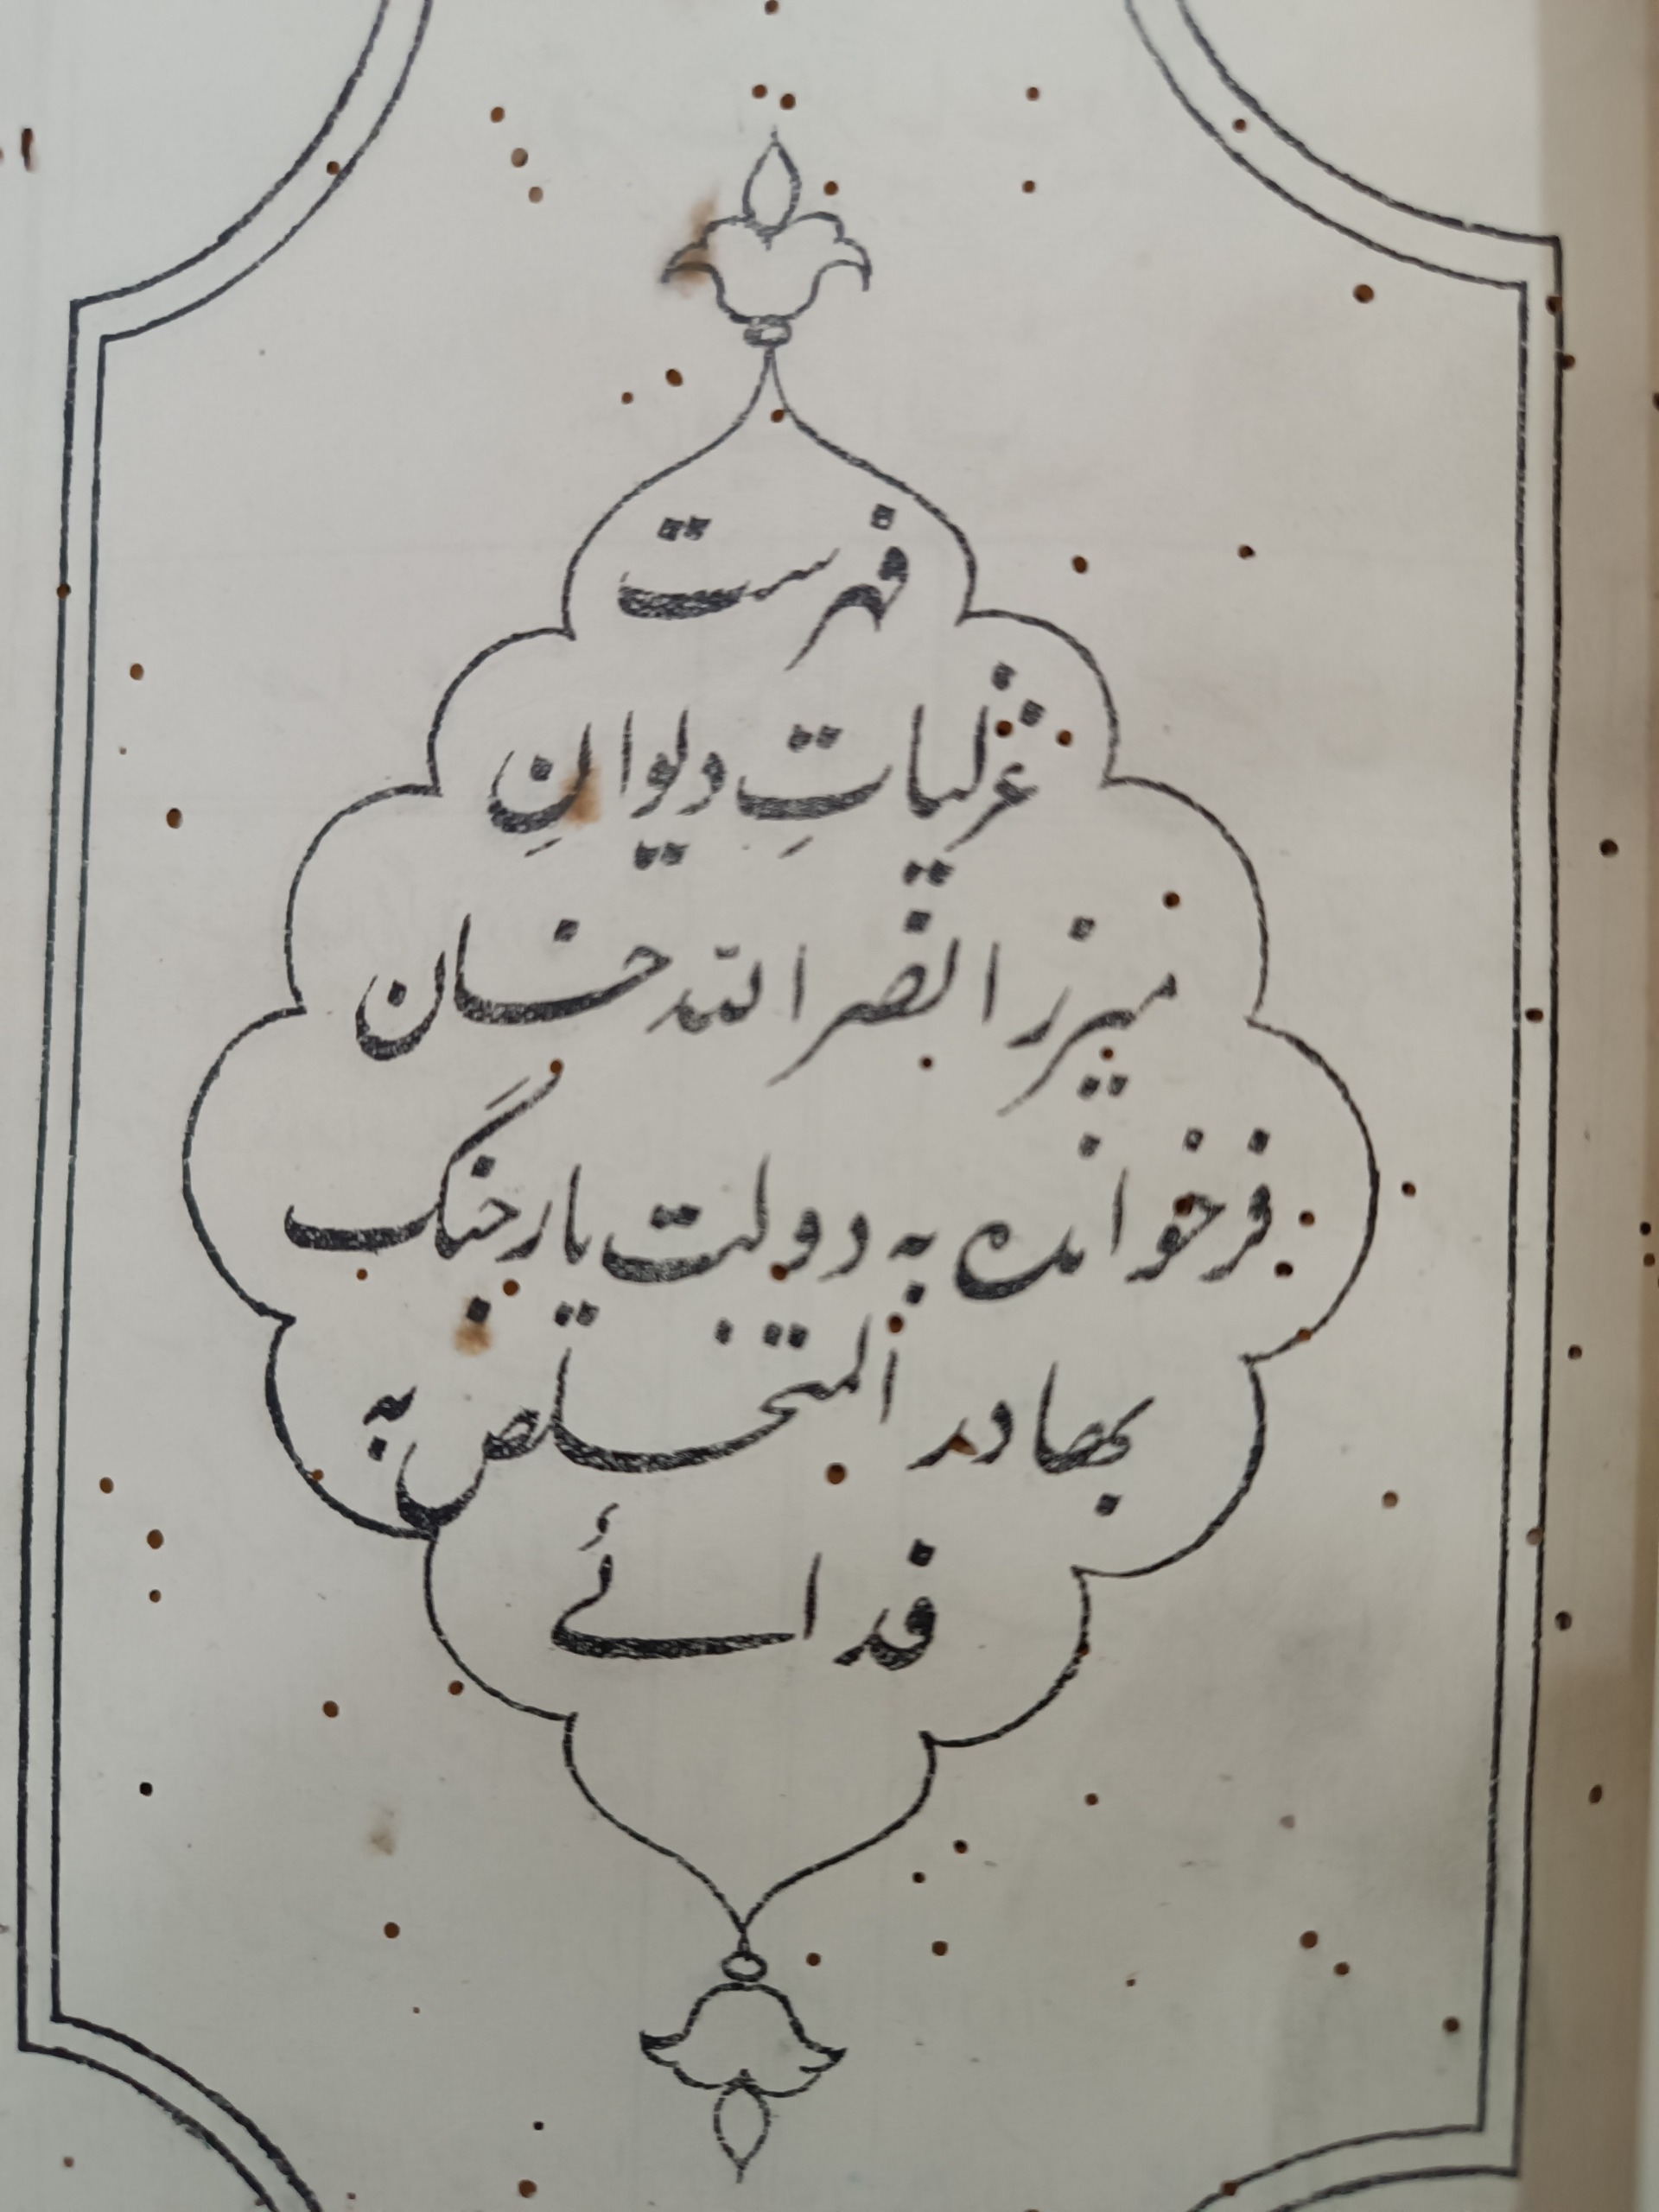 فہرست
غزلیاتِ دیوانِ
میرزا نصر اللہ خان
فرخواندہ بہ دولت یار جنگ
بھادر المتخلص بہ
فدائے